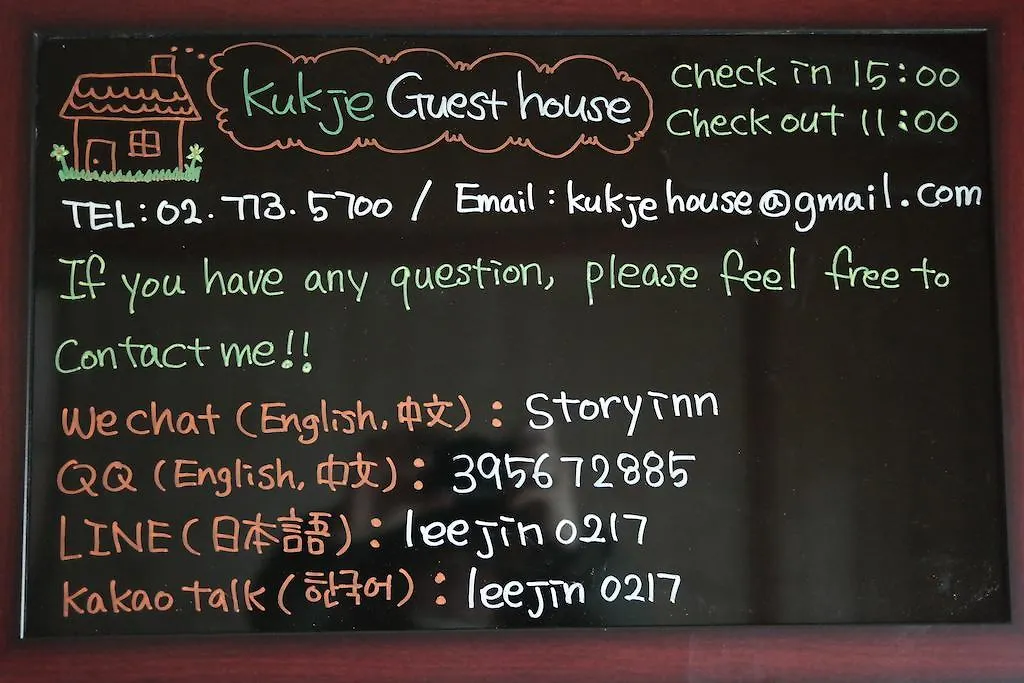 Kukje Guest house
Check in 15:00
Check out 11:00
TEL:02.773.5700 / Email:kukjehouse@gmail.com
If you have any question, please feel free to
Contact me!!
We chat (English, 中文) : Storyinn
QQ (English, 中文) : 395672885
LINE (日本語) : leejin0217
Kakao talk (한국어) : leejin0217